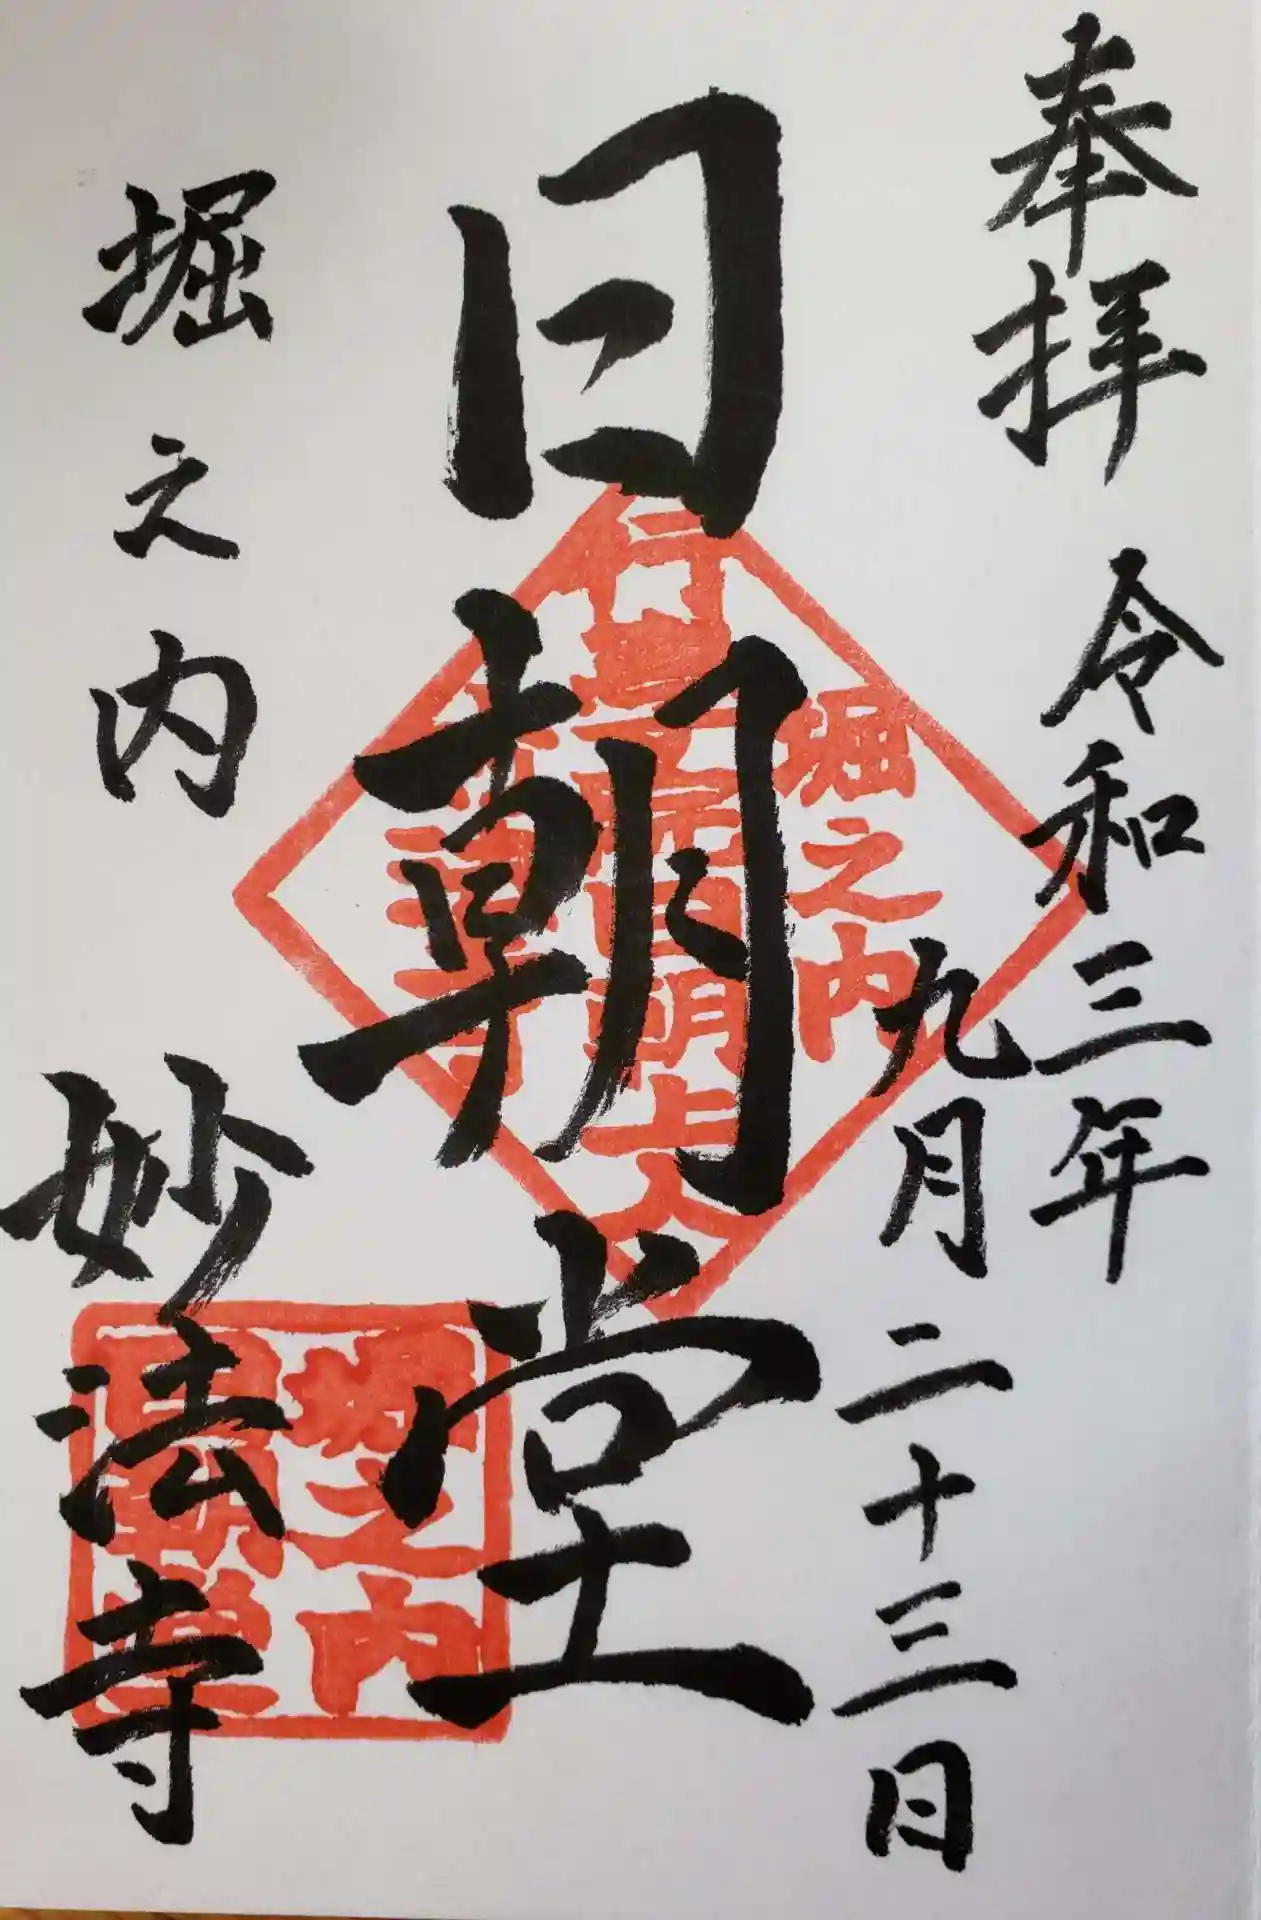 奉拝 令和三年
九月二十三日
日朝堂
堀之内 妙法寺
堀之内
行学院日朝上人
妙法寺
堀之内
日朝堂